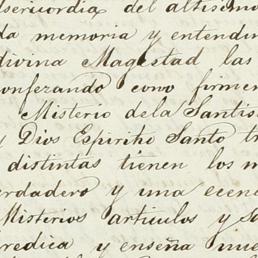 isericordia del altisimo
da memoria y entendim
divina Magestad las
confezando como firmem
Misterio dela Santis
y Dios Espiritho Santo tr
distintas tienen los m
erdadero y una ecenc
Misterios articulos y sa
redica y enseña nue